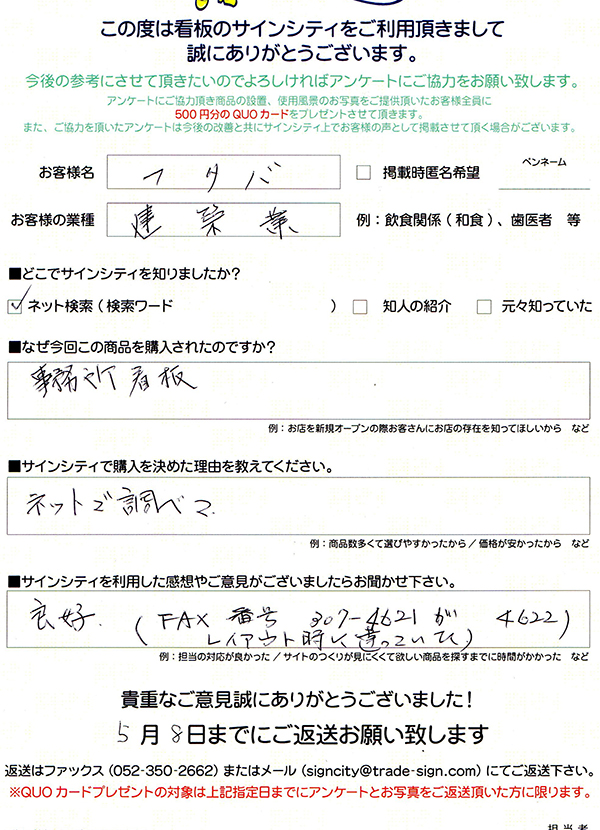 この度は看板のサインシティをご利用頂きまして
誠にありがとうございます。
今後の参考にさせて頂きたいのでよろしければアンケートにご協力をお願い致します。
アンケートにご協力頂き商品の設置、使用風景のお写真をご提供頂いたお客様全員に
500円分のQUOカードをプレゼントさせて頂きます。
また、ご協力を頂いたアンケートは今後の改善と共にサインシティ上でお客様の声として掲載させて頂く場合がございます。
お客様名 フタバ 掲載時匿名希望 ペンネーム
お客様の業種 建築業 例：飲食関係(和食)、歯医者 等
■どこでサインシティを知りましたか？
ネット検索(検索ワード ) 知人の紹介 元々知っていた
■なぜ今回この商品を購入されたのですか？
事務所看板
例：お店を新規オープンの際お客さんにお店の存在を知ってほしいから など
■サインシティで購入を決めた理由を教えてください。
ネットで調べて
例：商品数多くて選びやすかったから/価格が安かったから など
■サインシティを利用した感想やご意見がございましたらお聞かせ下さい。
良好. (FAX 番号 307-4621 が 4622)
レイアウト時に違っていた)
例：担当の対応が良かった/サイトのつくりが見にくくて欲しい商品を探すまでに時間がかかった など
貴重なご意見誠にありがとうございました！
5月8日までにご返送お願い致します
返送はファックス(052-350-2662)またはメール(signcity@trade-sign.com)にてご返送下さい。
※QUOカードプレゼントの対象は上記指定日までにアンケートとお写真をご返送頂いた方に限ります。
担当者